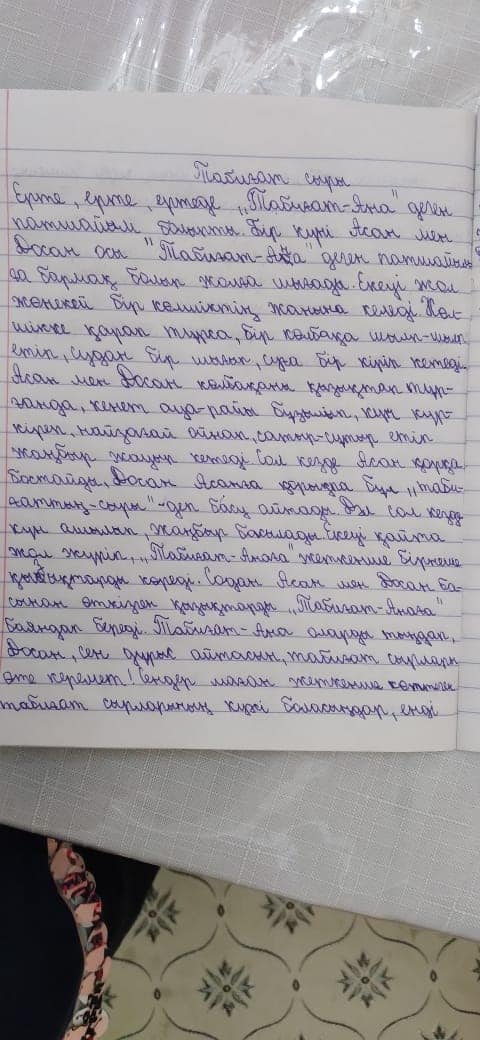 Табиғат сыры
Ерте, ерте, ертеде „Табиғат-Ана" деген
патшайым болыпты. Бір күні Асан мен
Досан осы "Табиғат-Ана" деген патшайым
ға бармақ болып жолға шығады. Екеуі жол
жөнекей бір көлшіктің жанына келеді. Көл-
шікке қарап тұрса, бір көлбақа шылп-шылп
етіп, судан бір шығып, суға бір кіріп кетеді.
Асан мен Досан көлбақаны қызықтап тұр-
ғанда, кенет ауа-райы бұзылып, күн күр-
кіреп, найзағай ойнап, сатыр-сұтыр етіп
жаңбыр жауып кетеді. Сол кезде Асан қорқа
бастайды, Досан Асанға қорықпа бұл „таби-
ғаттың-сыры"-деп басу айтады. Дәл сол кезде
күн ашылып, жаңбыр басылады. Екеуі қайта
жол жүріп, „Табиғат-Анаға" жеткенше бірнеше
қызықтарды көреді. Содан Асан мен Досан ба-
сынан өткізген қызықтарды „Табиғат-Анаға"
баяндап береді. Табиғат-Ана оларды тыңдап,
Досан, сен дұрыс айтасың, табиғат сырлары
өте керемет! Сендер маған жеткенше көптеген
табиғат сырларының куәсі боласыңдар, енді